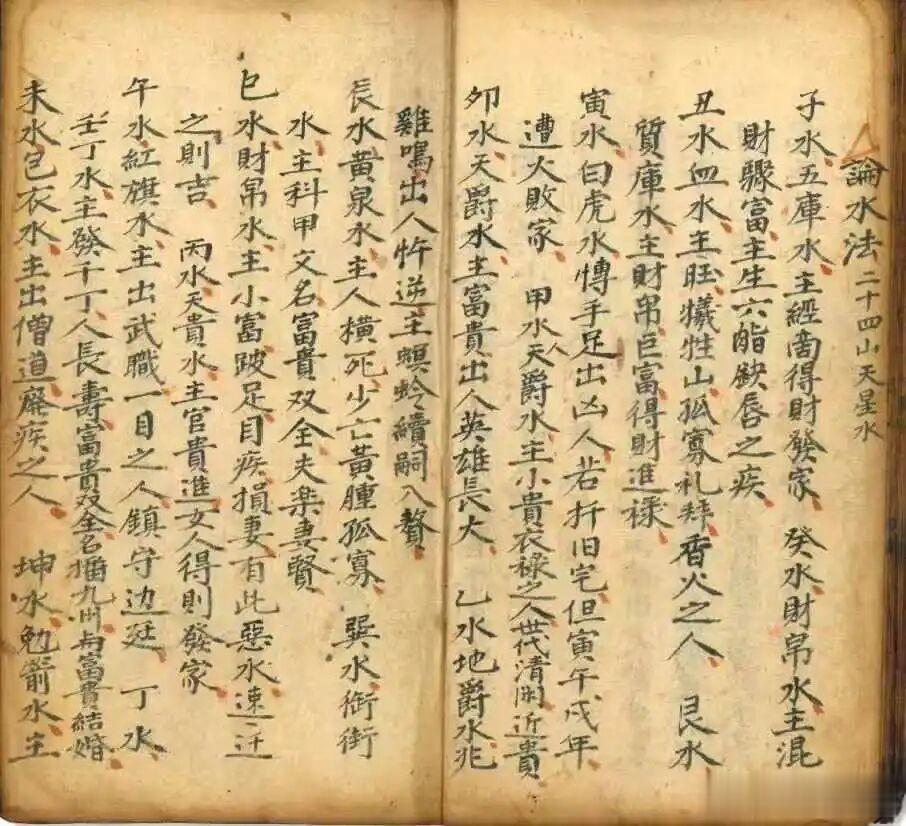 論水法 二十四山天星水
子水五庫水主經啇得財發家 癸水財帛水主混
財驟富主生六酯缺唇之疾
丑水血水主旺犧牲山孤寡礼拜香火之人 艮水
質庫水主財帛巨富得財進禄
寅水白虎水慱手足出凶人若拆旧宅但寅午戌年
遭火敗家 甲水天爵水主小貴衣禄之人世代清闲近貴人
卯水天爵水主富貴出人英雄長大 乙水地爵水兆
雞鳴出人忤逆主螟蛉續嗣入贅
辰水黄泉水主人横死少亡黄腫孤寡 巽水銜街
水主科甲文名富貴双全夫楽妻賢
巳水財帛水主小富跛足目疾損妻有此惡水速迁
之則吉 丙水天貴水主官貴進女人得則發家
午水紅旗水主出武職一目之人鎮守边廷 丁水
壬丁水主發千丁人長壽富貴双全名播九州与富貴結婚
未水包衣水主出僧道廢疾之人 坤水勉箭水主